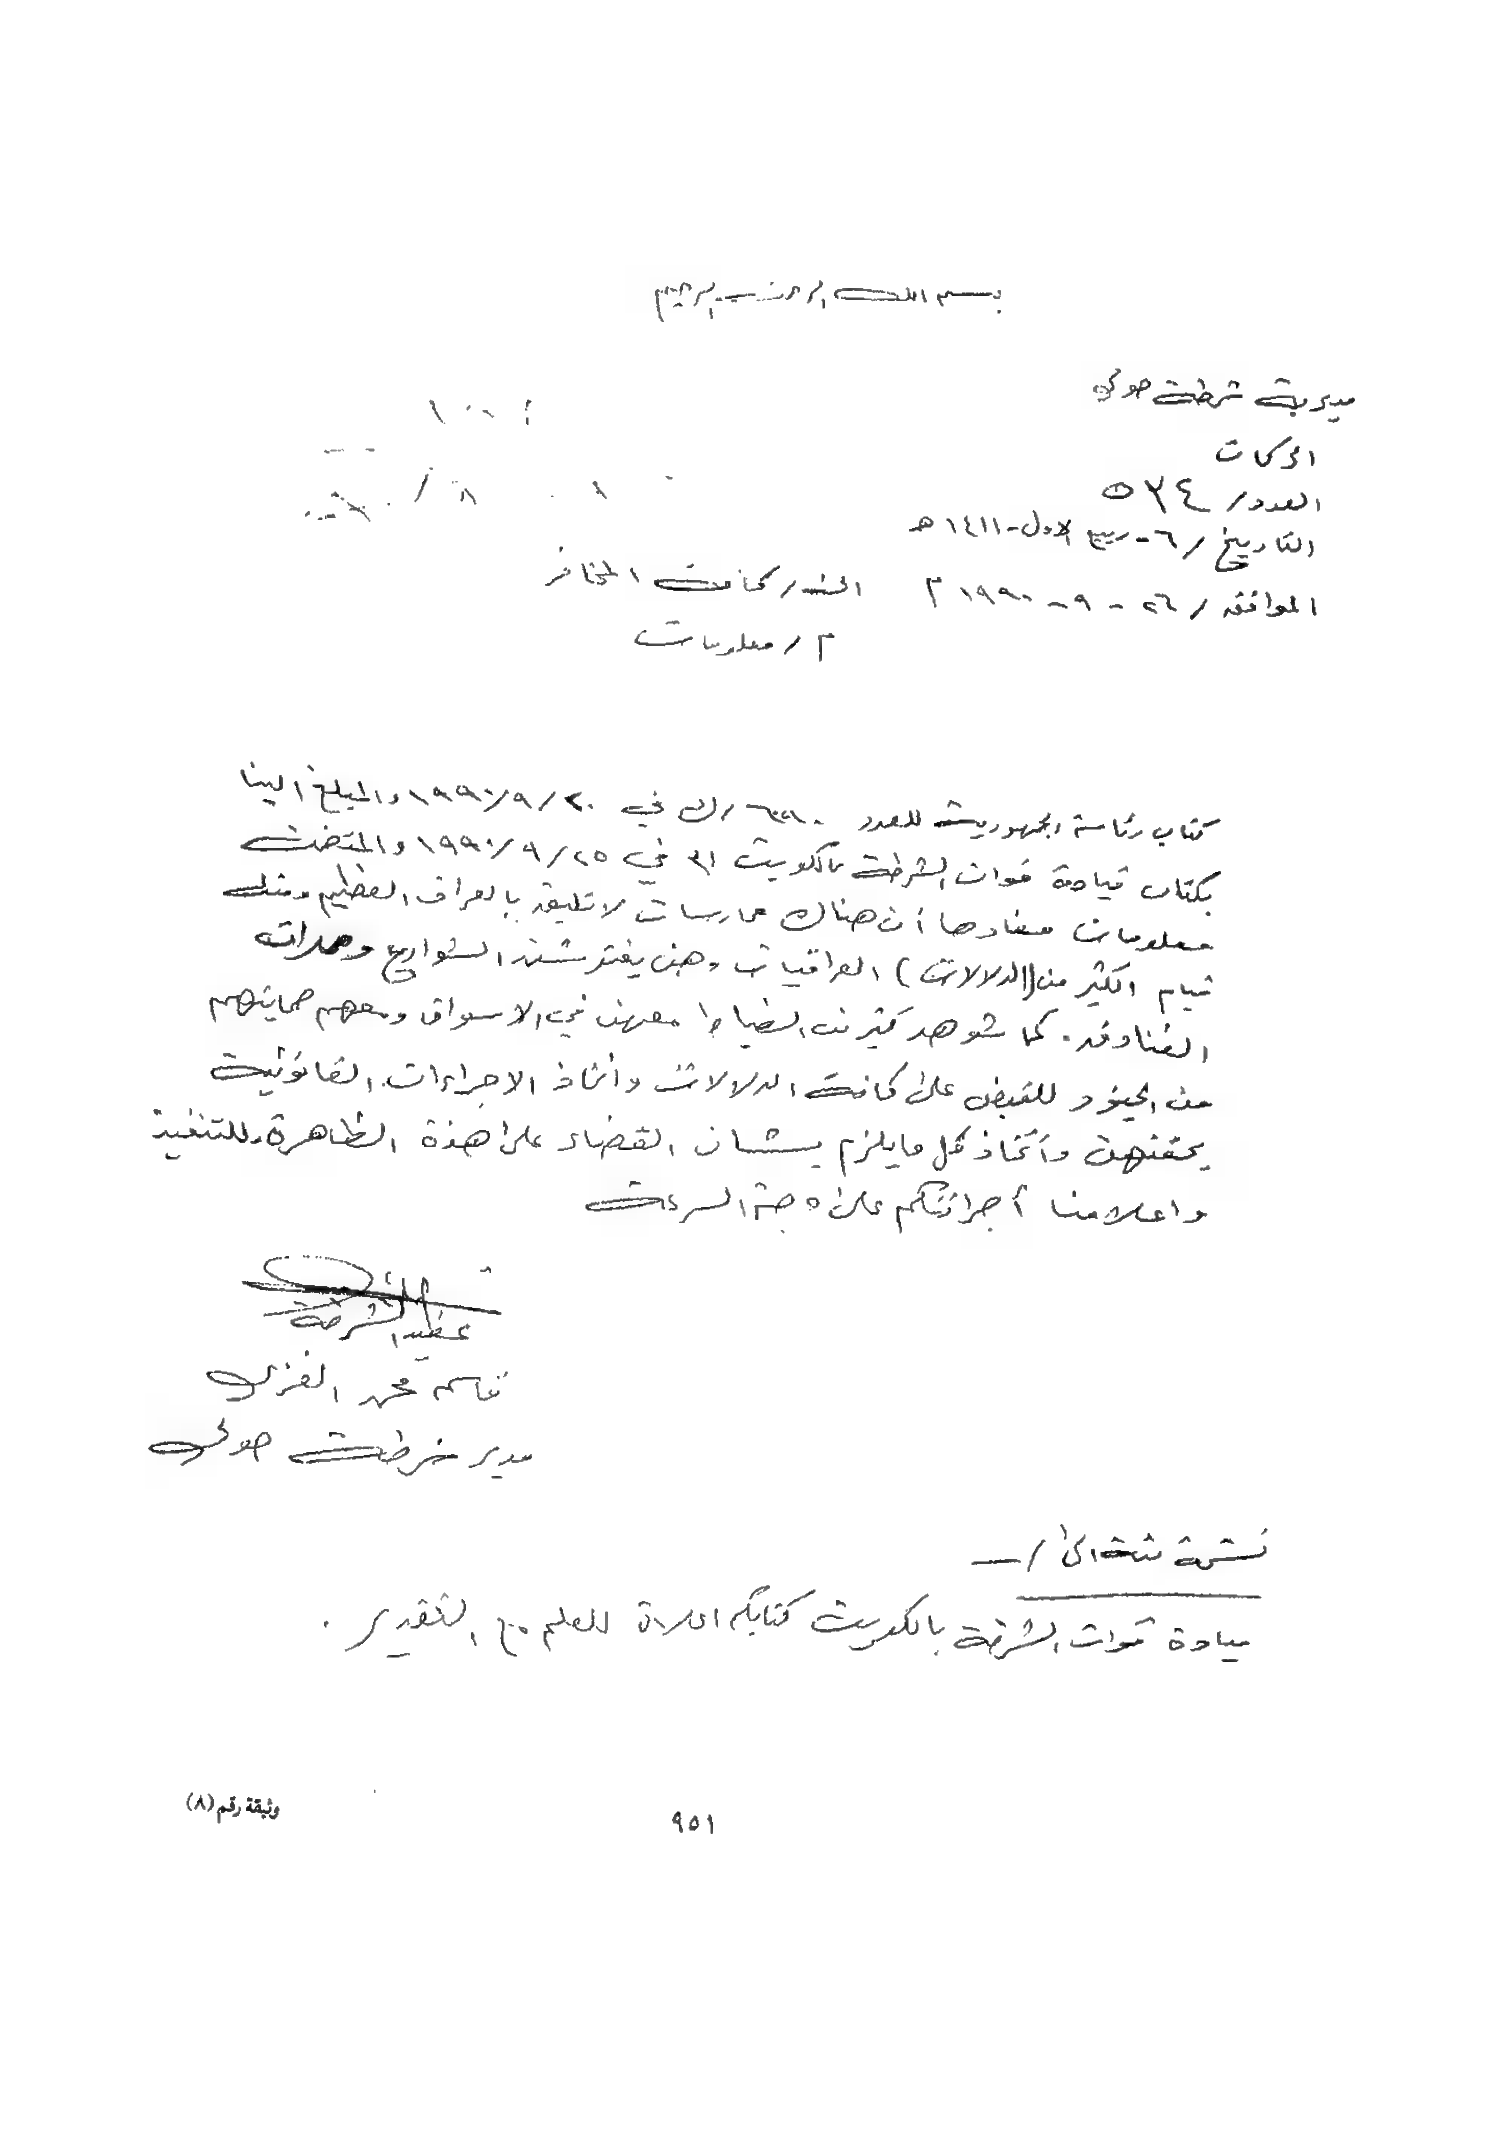 بسم الله الرحمن الرحيم
مديرية شرطة حولي
الحركات
العدد/ ٥٣٤
التاريخ/ ٦- ربيع الاول-١٤١١ هـ
الموافق/ ٢٦ - ٩ - ١٩٩٠ م
الى/ كافة المخافر
م/ معلومات
كتاب رئاسة الجمهورية للعدد /ك في ٢٠/٩/١٩٩٠ والمبلغ الينا
بكتاب قيادة قوات الشرطة بالكويت ٣١ في ٢٥/٩/١٩٩٠ والمتضمنة
معلومات مفادها أن هناك ممارسات لا تليق بالعراق العظيم ومنها
قيام الكثير من (الدلالات) العراقيات وهن يفترشن الشوارع وممرات
الفنادق. كما شوهد كثير من الضباط معهن في الاسواق ومعهم حمايتهم
من الجنود للقبض على كافة الدلالات وأتخاذ الاجراءات القانونية
بحقهن وأتخاذ كل مايلزم بشان القضاء على هذة الظاهرة للتنفيذ
واعلامنا أجرائتكم على وجة السرعة
عقيد الشرطة
قاسم محمد الغزي
مدير شرطة حولي
نسخة منة الى/-
قيادة قوات الشرطة بالكويت كتابكم اعلاة للعلم مع التقدير.
٩٥١
وثيقة رقم (٨)